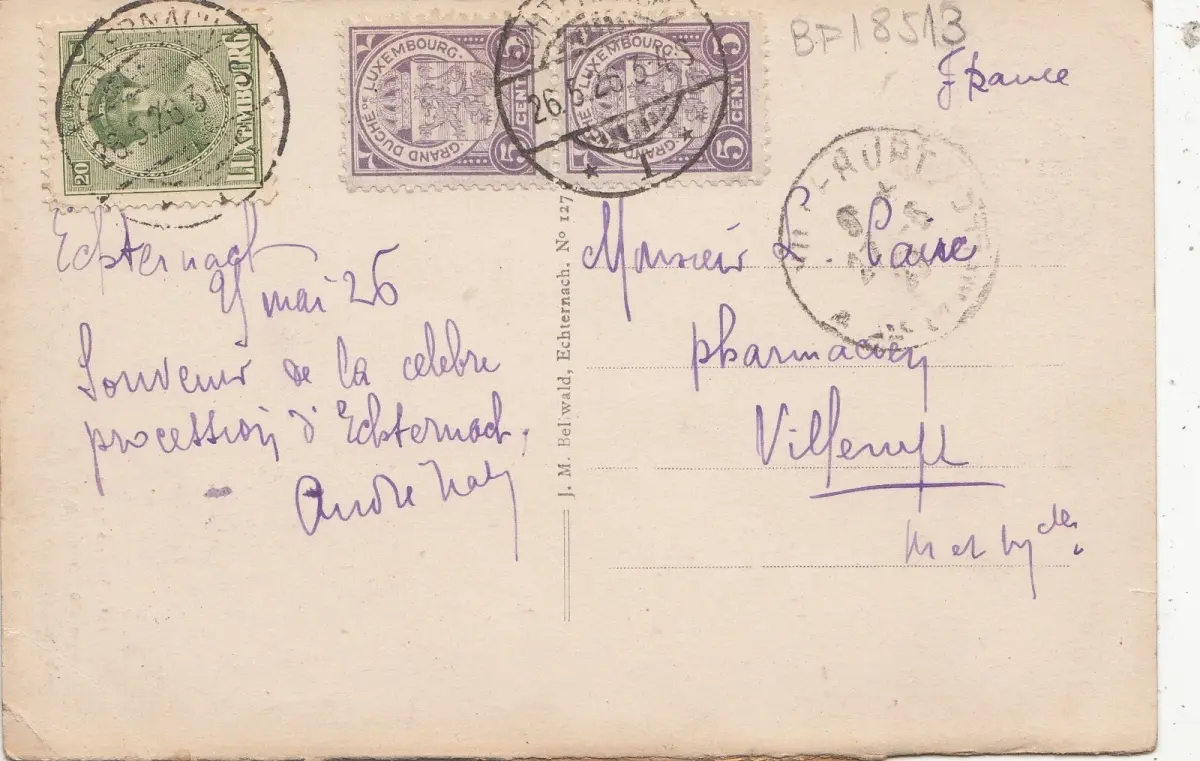 20
LUXEMBOURG
5 CENT. 5
GRAND DUCHÉ DE LUXEMBOURG
5 CENT. 5
GRAND DUCHÉ DE LUXEMBOURG
26.5.26.3
1
BF18513
France
Echternach
mai 26
Souvenir de la celebre
procession d'Echternach.
André
J. M. Bellwald, Echternach. No 127
Monsieur L.
pharmacien
Villerupt
M et M